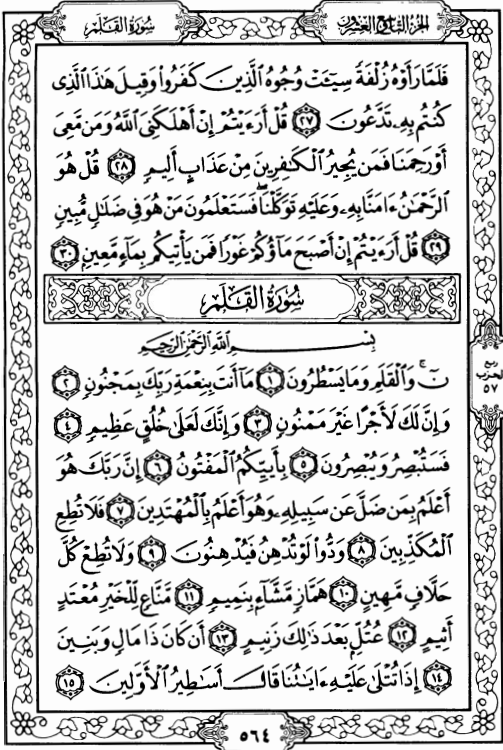 سُورَةُ القَلَمِ
الجُزْءُ التَّاسِعُ وَالعِشْرُونَ
فَلَمَّا رَأَوْهُ زُلْفَةً سِيٓـَٔتْ وُجُوهُ ٱلَّذِينَ كَفَرُوا۟ وَقِيلَ هَـٰذَا ٱلَّذِى
كُنتُم بِهِۦ تَدَّعُونَ ﴿٢٧﴾ قُلْ أَرَءَيْتُمْ إِنْ أَهْلَكَنِىَ ٱللَّهُ وَمَن مَّعِىَ
أَوْ رَحِمَنَا فَمَن يُجِيرُ ٱلْكَـٰفِرِينَ مِنْ عَذَابٍ أَلِيمٍ ﴿٢٨﴾ قُلْ هُوَ
ٱلرَّحْمَـٰنُ ءَامَنَّا بِهِۦ وَعَلَيْهِ تَوَكَّلْنَا ۖ فَسَتَعْلَمُونَ مَنْ هُوَ فِى ضَلَـٰلٍ مُّبِينٍ
﴿٢٩﴾ قُلْ أَرَءَيْتُمْ إِنْ أَصْبَحَ مَآؤُكُمْ غَوْرًا فَمَن يَأْتِيكُم بِمَآءٍ مَّعِينٍۭ ﴿٣٠﴾
سُورَةُ القَلَمِ
بِسْمِ ٱللَّهِ ٱلرَّحْمَـٰنِ ٱلرَّحِيمِ
نٓ ۚ وَٱلْقَلَمِ وَمَا يَسْطُرُونَ ﴿١﴾ مَآ أَنتَ بِنِعْمَةِ رَبِّكَ بِمَجْنُونٍ ﴿٢﴾
وَإِنَّ لَكَ لَأَجْرًا غَيْرَ مَمْنُونٍ ﴿٣﴾ وَإِنَّكَ لَعَلَىٰ خُلُقٍ عَظِيمٍ ﴿٤﴾
فَسَتُبْصِرُ وَيُبْصِرُونَ ﴿٥﴾ بِأَييِّكُمُ ٱلْمَفْتُونُ ﴿٦﴾ إِنَّ رَبَّكَ هُوَ
أَعْلَمُ بِمَن ضَلَّ عَن سَبِيلِهِۦ وَهُوَ أَعْلَمُ بِٱلْمُهْتَدِينَ ﴿٧﴾ فَلَا تُطِعِ
ٱلْمُكَذِّبِينَ ﴿٨﴾ وَدُّوا۟ لَوْ تُدْهِنُ فَيُدْهِنُونَ ﴿٩﴾ وَلَا تُطِعْ كُلَّ
حَلَّافٍ مَّهِينٍ ﴿١٠﴾ هَمَّازٍ مَّشَّآءٍۭ بِنَمِيمٍ ﴿١١﴾ مَّنَّاعٍ لِّلْخَيْرِ مُعْتَدٍ
أَثِيمٍ ﴿١٢﴾ عُتُلٍّۭ بَعْدَ ذَٰلِكَ زَنِيمٍ ﴿١٣﴾ أَن كَانَ ذَا مَالٍ وَبَنِينَ
﴿١٤﴾ إِذَا تُتْلَىٰ عَلَيْهِ ءَايَـٰتُنَا قَالَ أَسَـٰطِيرُ ٱلْأَوَّلِينَ ﴿١٥﴾
ربع
الحزب
٥٧
٥٦٤